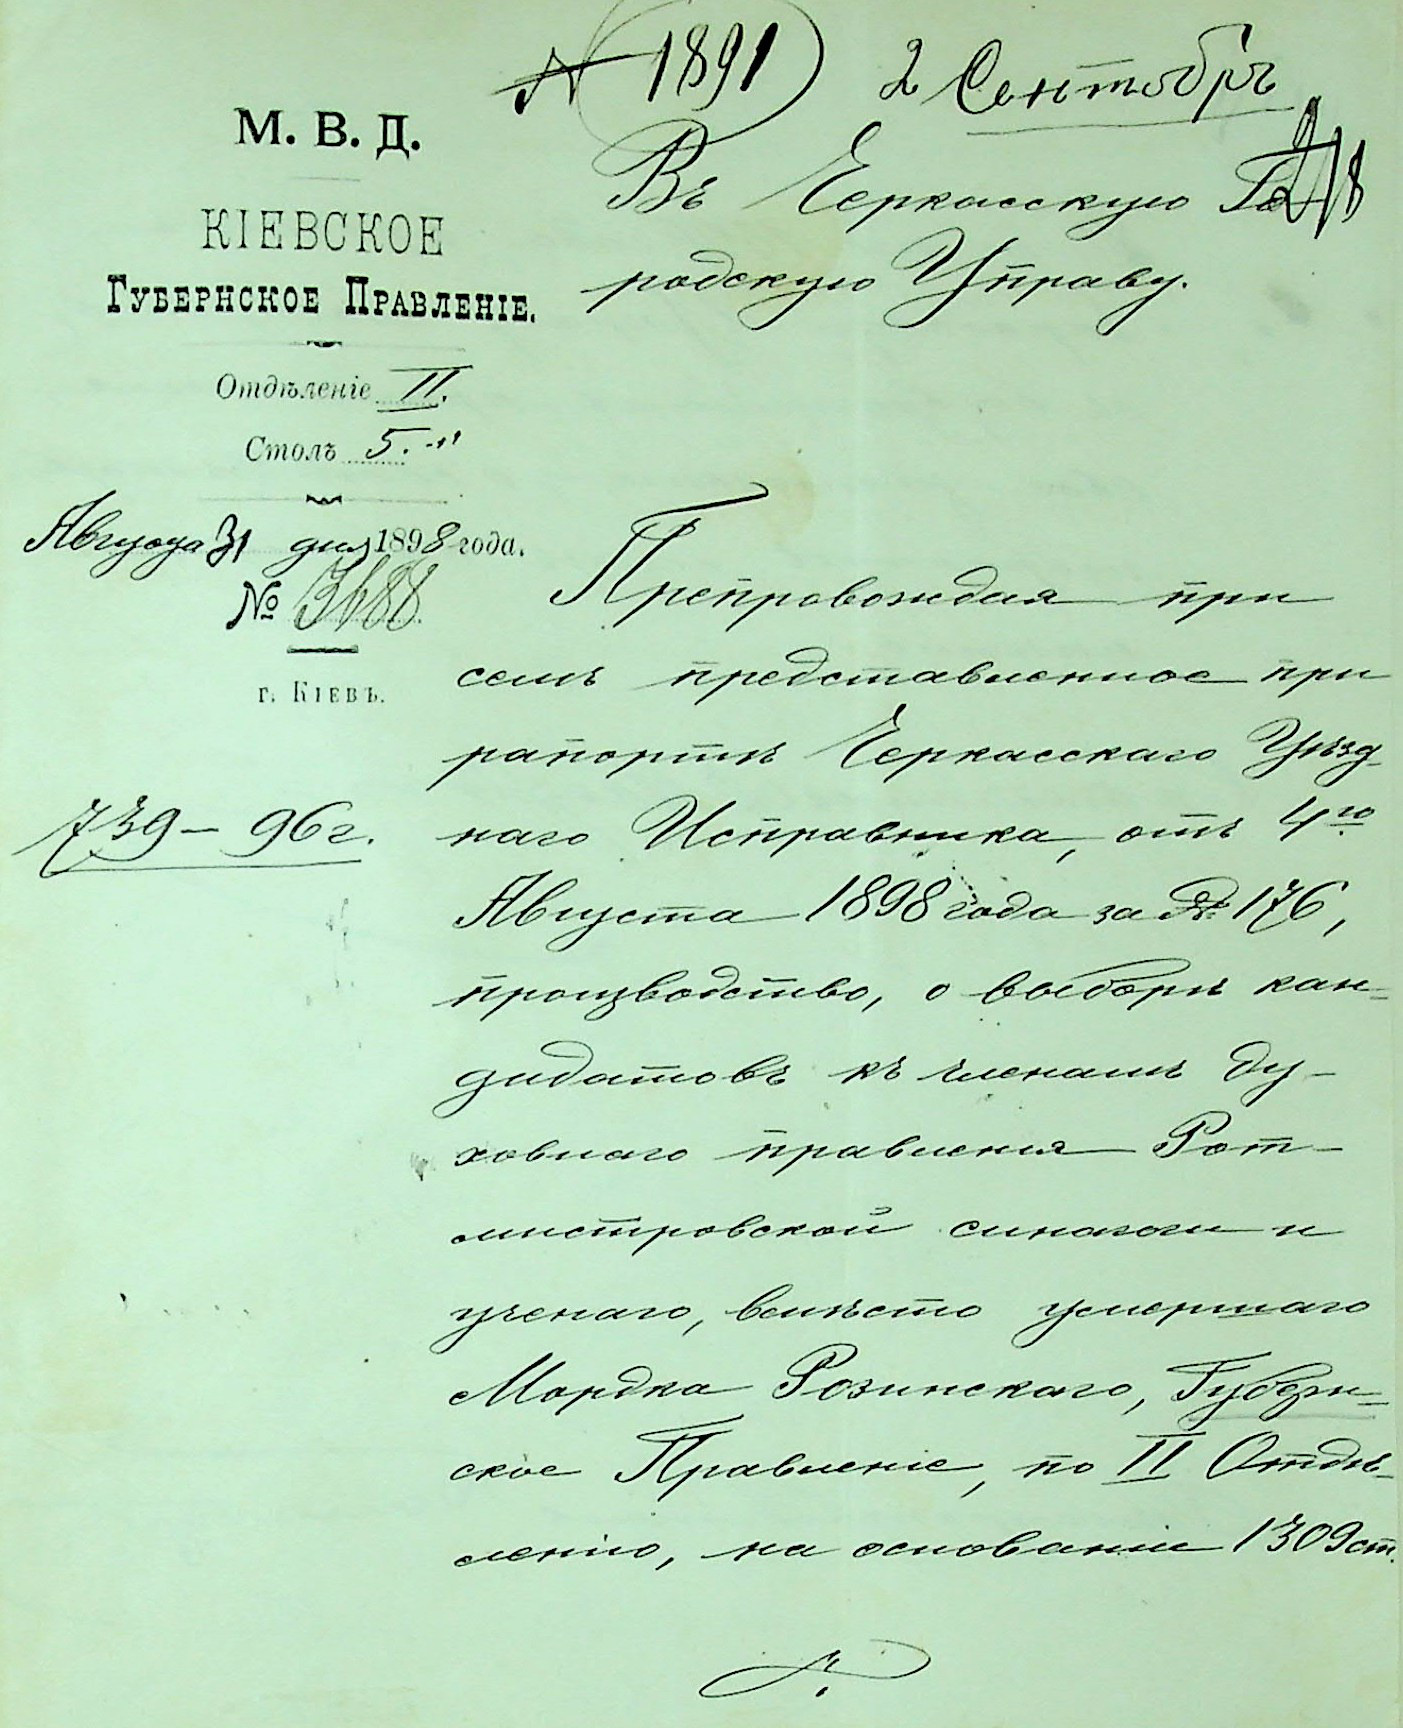 № 1891 2 Сентябрь
М. В. Д.
КІЕВСКОЕ
ГУБЕРНСКОЕ ПРАВЛЕНІЕ.
Отдѣленіе II.
Столъ 5.
Августа 31 дня 1898 года.
№
г. КІЕВЪ.
739 – 96 г.
Въ Черкасскую Го
родскую Управу.
Препровождая при
семъ представленное при
рапортѣ Черкасскаго Уѣзд-
наго Исправника, отъ 4го
Августа 1898 года за № 176,
производство, о выборѣ кан-
дидатовъ къ членамъ Ду-
ховнаго правленія Рот-
мистровской синагоги и
ученаго, вмѣсто умершаго
Мордка Розинскаго, Губерн-
ское Правленіе, по II Отдѣ-
ленію, на основаніи 1309 ст.